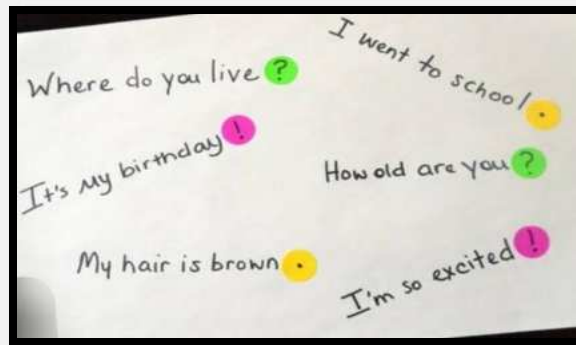 Where do you live?
I went to school.
It's my birthday!
How old are you?
My hair is brown.
I'm so excited!